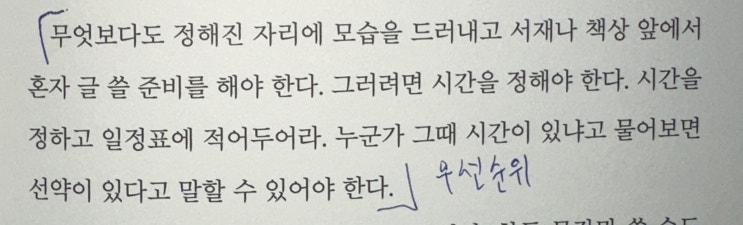 무엇보다도 정해진 자리에 모습을 드러내고 서재나 책상 앞에서
혼자 글 쓸 준비를 해야 한다. 그러려면 시간을 정해야 한다. 시간을
정하고 일정표에 적어두어라. 누군가 그때 시간이 있냐고 물어보면
선약이 있다고 말할 수 있어야 한다. 우선순위